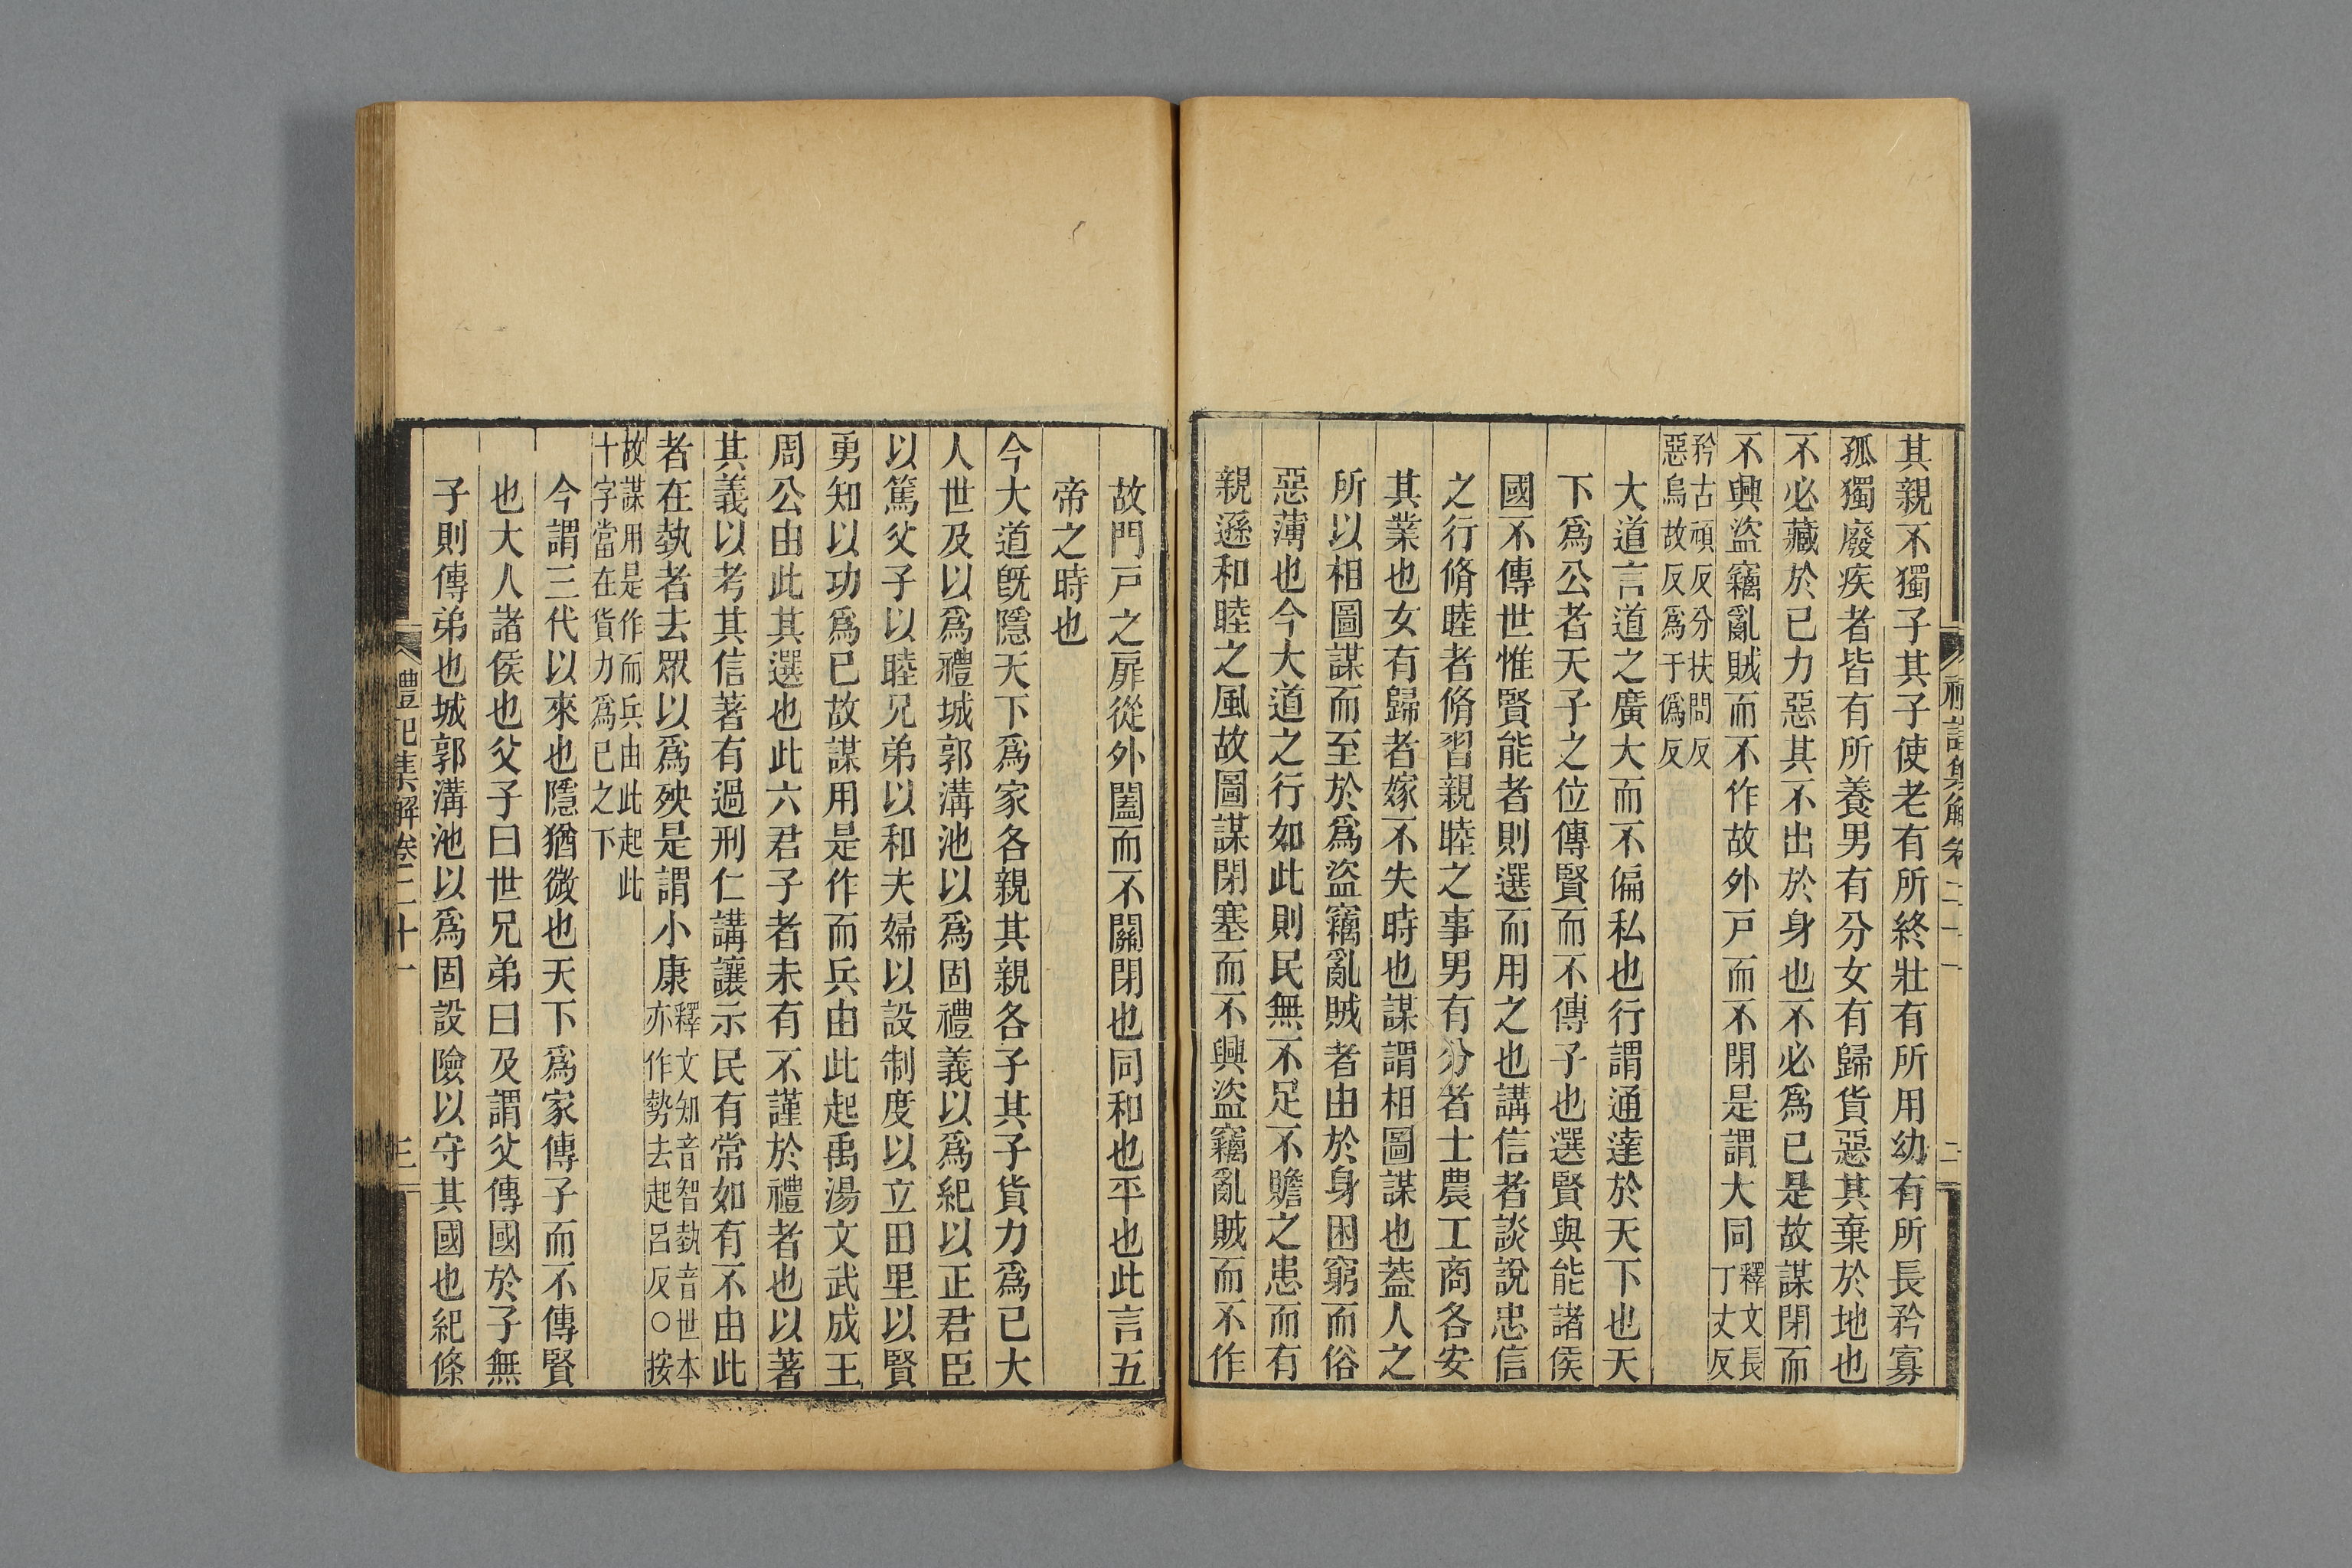 其親不獨子其子使老有所終壯有所用幼有所長矜寡
孤獨廢疾者皆有所養男有分女有歸貨惡其棄於地也
不必藏於已力惡其不出於身也不必為已是故謀閉而
不興盜竊亂賊而不作故外戸而不閉是謂大同釋文長丁丈反
矜古頑反分扶問反
惡烏故反為于僞反
大道言道之廣大而不偏私也行謂通達於天下也天
下爲公者天子之位傳賢而不傳子也選賢與能諸侯
國不傳世惟賢能者則選而用之也講信者談說忠信
之行脩睦者脩習親睦之事男有分者士農工商各安
其業也女有歸者嫁不失時也謀謂相圖謀也葢人之
所以相圖謀而至於爲盜竊亂賊者由於身困窮而俗
惡薄也今大道之行如此則民無不足不贍之患而有
親遜和睦之風故圖謀閉塞而不興盜竊亂賊而不作
故門戸之扉從外闔而不關閉也同和也平也此言五
帝之時也
今大道旣隱天下爲家各親其親各子其子貨力爲已大
人世及以爲禮城郭溝池以爲固禮義以爲紀以正君臣
以篤父子以睦兄弟以和夫婦以設制度以立田里以賢
勇知以功爲已故謀用是作而兵由此起禹湯文武成王
周公由此其選也此六君子者未有不謹於禮者也以著
其義以考其信著有過刑仁講讓示民有常如有不由此
者在埶者去眾以爲殃是謂小康釋文知音智埶音世本亦作勢去起呂反○按
故謀用是作而兵由此起此
十字當在貨力為已之下
今謂三代以來也隱猶微也天下爲家傳子而不傳賢
也大人諸侯也父子曰世兄弟曰及謂父傳國於子無
子則傳弟也城郭溝池以爲固設險以守其國也紀條
禮記集解卷二十一
三